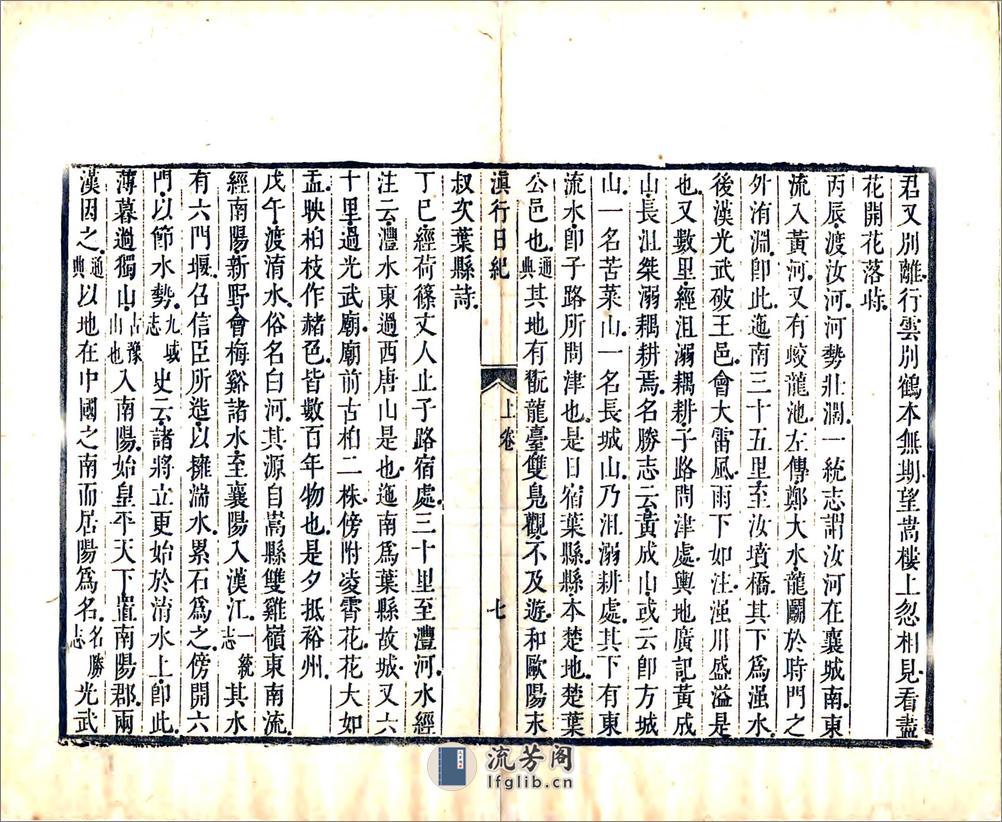 君又別離行雲別鶴本無期望嵩樓上忽相見看盡
花開花落時
丙辰渡汝河河勢壯濶一統志謂汝河在襄城南東
流入黃河又有蛟龍池左傳鄭大水龍鬭於時門之
外洧淵卽此迤南三十五里至汝墳橋其下爲滍水
後漢光武破王邑會大雷風雨下如注滍川盛溢是
也又數里經沮溺耦耕子路問津處輿地廣記黃成
山長沮桀溺耦耕焉名勝志云黃成山或云卽方城
山一名苦菜山一名長城山乃沮溺耕處其下有東
流水卽子路所問津也是日宿葉縣縣本楚地楚葉
公邑也通典其地有翫龍臺雙鳧觀不及遊和歐陽末
滇行日紀 上卷 七
叔次葉縣詩
丁巳經荷篠丈人止子路宿處三十里至灃河水經
注云灃水東過西唐山是也迤南爲葉縣故城又六
十里過光武廟廟前古柏二株傍附凌霄花花大如
盂映柏枝作赭色皆數百年物也是夕抵裕州
戊午渡淯水俗名白河其源自嵩縣雙雞嶺東南流
經南陽新野會梅谿諸水至襄陽入漢江一統志其水
有六門堰召信臣所造以擁湍水累石爲之傍開六
門以節水勢九域志史云諸將立更始於淯水上卽此
薄暮過獨山古豫山也入南陽始皇平天下置南陽郡兩
漢因之通典以地在中國之南而居陽爲名名勝志光武
流芳阁
lfglib.cn